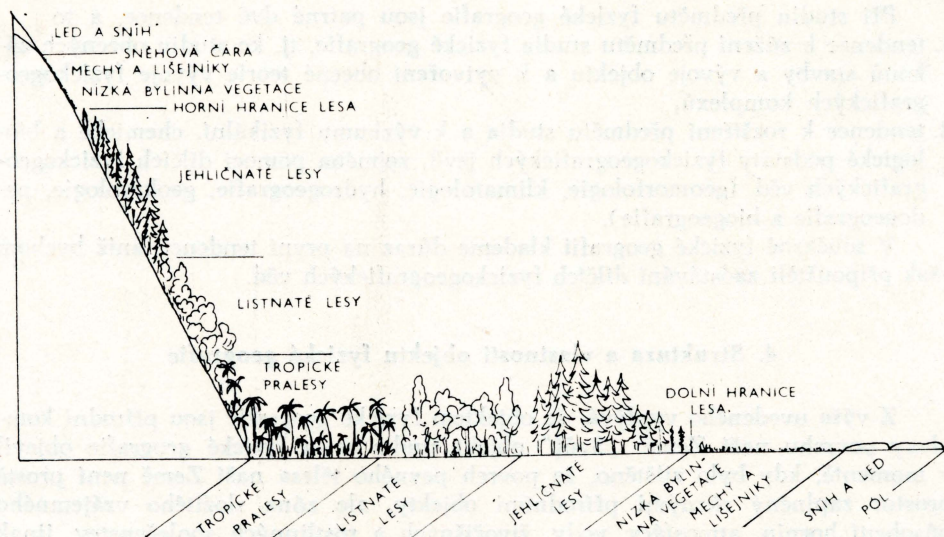 LED A SNÍH
SNĚHOVÁ ČÁRA
MECHY A LIŠEJNÍKY
NÍZKÁ BYLINNA VEGETACE
HORNÍ HRANICE LESA
JEHLIČNATÉ LESY
LISTNATÉ LESY
TROPICKÉ
PRALESY
DOLNÍ HRANICE
LESA
TROPICKÉ
PRALESY
LISTNATÉ
LESY
JEHLIČNATÉ
LESY
NÍZKÁ BYLIN-
NA VEGETACE
MECHY A
LIŠEJNÍKY
SNÍH A LED
PÓL